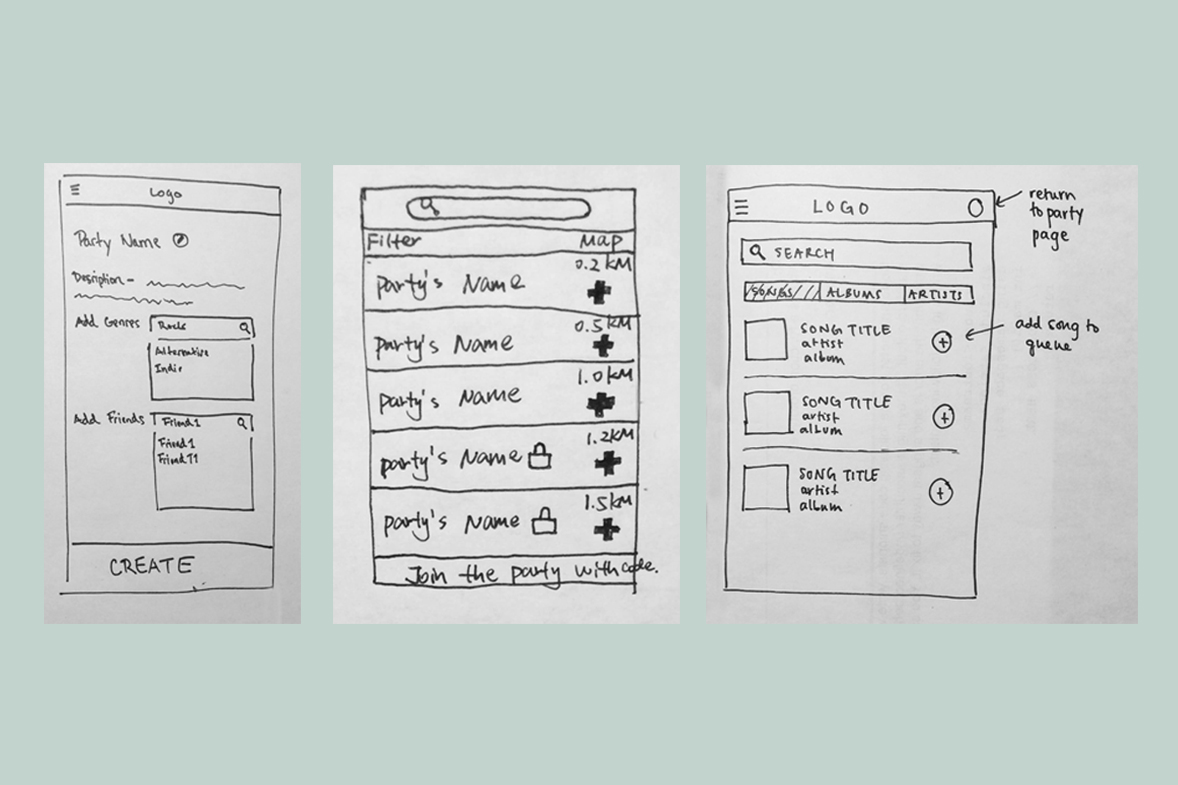 Logo
Party Name
Desription -
Add Genres
Rock
Alternative
Indie
Add Friends
Friend 1
Friend 1
Friend 11
CREATE
Filter Map
party's Name 0.2 KM
party's Name 0.5 KM
party's Name 1.0 KM
party's Name 1.2 KM
party's Name 1.5 KM
Join the party with code.
LOGO
return
to party
page
SEARCH
SONGS ALBUMS ARTISTS
SONG TITLE
artist
album
add song to
queue
SONG TITLE
artist
album
SONG TITLE
artist
album